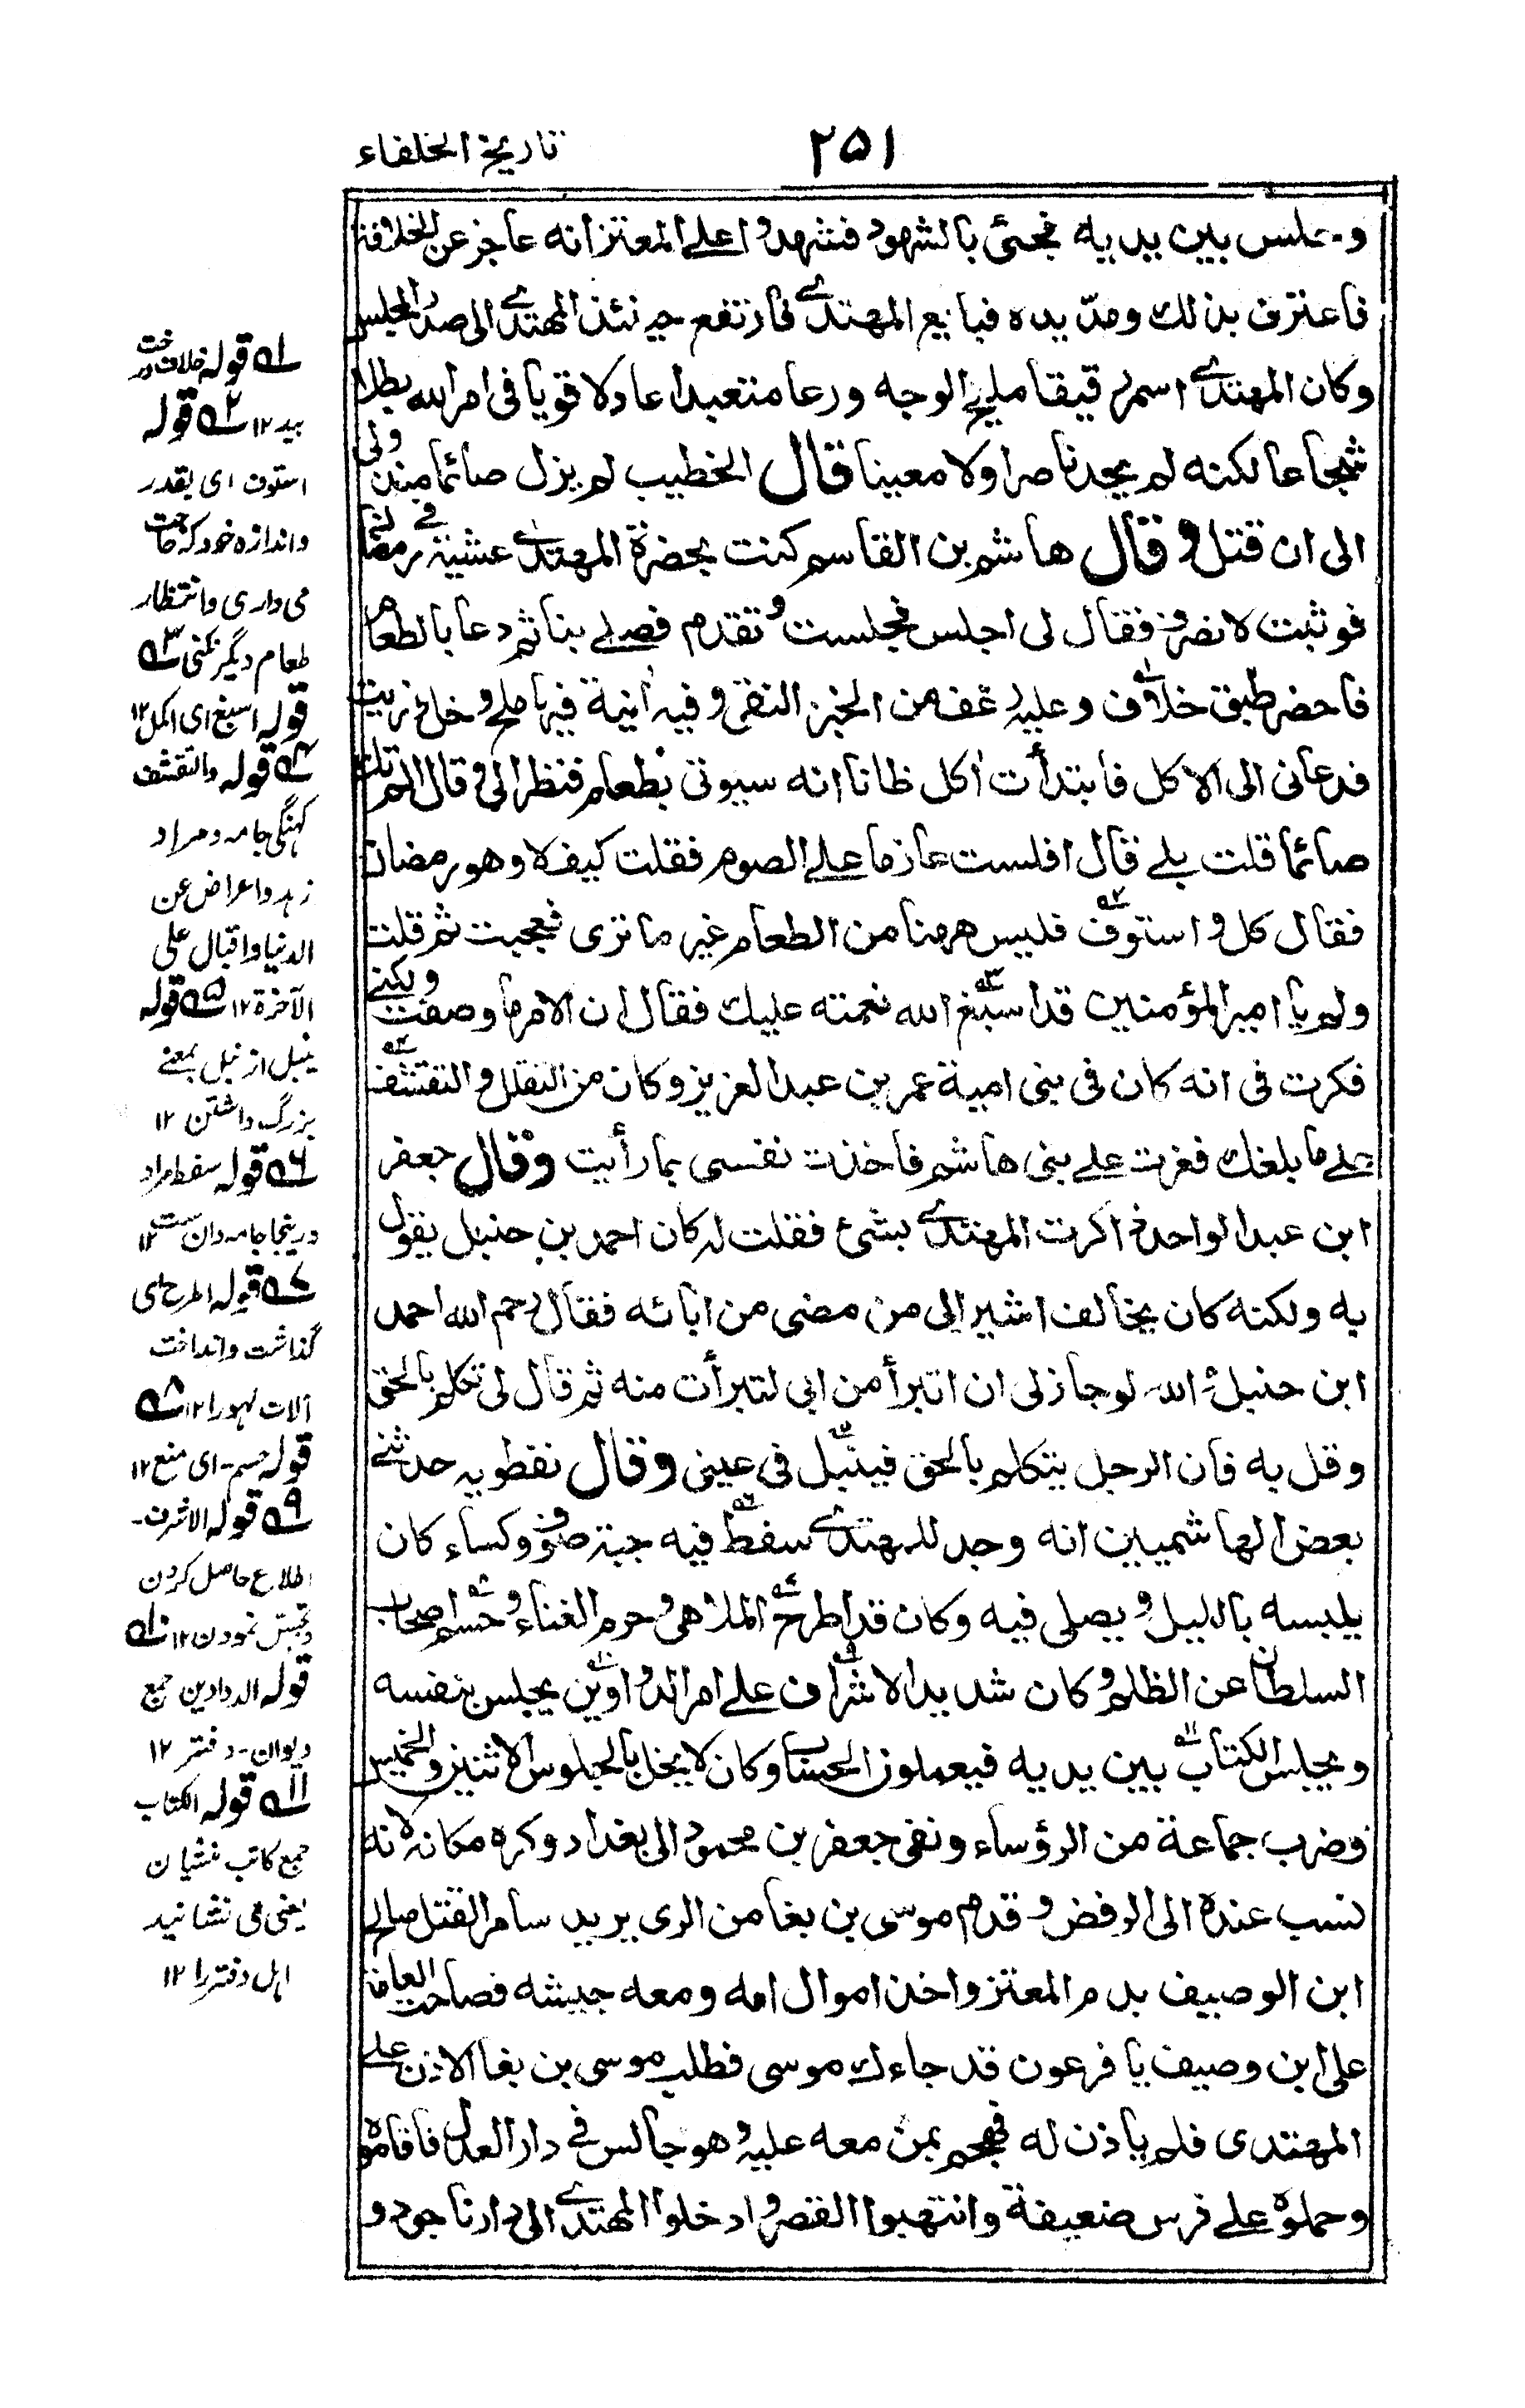 ٢٥١
تاريخ الخلفاء
وجلس بين يديه فجئ بالشهود فشهدوا على المعتز انه عاجز عن الخلافة
فاعترف بذلك ومدّ يده فبايع المهتدى فارتفع حينئذ المهتدى الى صدر المجلس
وكان المهتدى اسمر رقيقا مليح الوجه ورعا متعبدا عادلا قويا فى امر الله بطلا
شجاعا لكنه لم يجد ناصرا ولا معينا قال الخطيب لم يزل صائما منذ ولى
الى ان قتل وقال هاشم بن القاسم كنت بحضرة المهتدى عشية فى رمضان
فوثبت لانصرف فقال لى اجلس فجلست وتقدم فصلى بنا ثم دعا بالطعام
فاحضر طبق خلاف وعليه رغف من الخبز النقى وفيه أنية فيها ملح وخل وزيت
فدعانى الى الاكل فابتدأت أكل ظانا انه سيوتى بطعام فنظر الى وقال الم تك
صائما قلت بلے قال افلست عازما على الصوم فقلت كيف لا وهو رمضان
فقال كل واستوف فليس ههنا من الطعام غير ما ترى فعجبت ثم قلت
ولم يا امير المؤمنين قد اسبغ الله نعمته عليك فقال ان الامر ما وصفت ولكنى
فكرت فى انه كان فى بنى امية عمر بن عبد العزيز وكان من التقلل والتقشف
على ما بلغك فغرت على بنى هاشم فاخذت نفسى بما رأيت وقال جعفر
ابن عبد الواحد ذاكرت المهتدى بشئ فقلت له كان احمد بن حنبل يقول
به ولكنه كان يخالف اشير الى من مضى من ابائه فقال رحم الله احمد
ابن حنبل والله لو جاز لى ان اتبرأ من ابى لتبرأت منه ثم قال لى تكلم بالحق
وقل به فان الرجل يتكلم بالحق فينبل فى عينى وقال نفطويه حدثنى
بعض الهاشميين انه وجد للمهتدى سفط فيه جبة صوف وكساء كان
يلبسه بالليل ويصلى فيه وكان قد اطرح الملاهى وحرم الغناء وحسم اصحاب
السلطان عن الظلم وكان شديد الاشراف على امر الدواوين يجلس بنفسه
ويجلس الكتاب بين يديه فيعملون الحساب وكان لا يخل بالجلوس الاثنين والخميس
وضرب جماعة من الرؤساء ونفى جعفر بن محمود الى بغداد وكره مكانه لانه
نسب عنده الى الرفض وقدم موسى بن بغا من الرى يريد سامرا لقتل صالح
ابن الوصيف بدم المعتز واخذ اموال امه ومعه جيشه فصاحت العامة
على ابن وصيف يا فرعون قد جاءك موسى فطلب موسى بن بغا الاذن على
المهتدى فلم ياذن له فهجم بمن معه عليه وهو جالس فى دار العدل فاقاموه
وحملوه على فرس ضعيفة وانتهبوا القصر وادخلوا المهتدى الى دار ناجود و
له١ قوله خلاف درخت
بيد ١٢ له٢ قوله
استوف اى بقدر
واندازه خود كه حاجت
مى دارى وانتظار
طعام ديگر نكنى له٣
قوله اسبغ اى اكمل ١٢
له٤ قوله والتقشف
كهنگى جامه ومراد
زهد واعراض عن
الدنيا واقبال على
الآخرة ١٢ له٥ قوله
ينبل از نبل بمعنى
بزرگ داشتن ١٢
له٦ قوله سفط مراد
درينجا جامه دان ست ١٢
له٧ قوله اطرح اى
گذاشت وانداخت
آلات لهو را ١٢ له٨
قوله حسم - اى منع ١٢
له٩ قوله الاشرف -
اطلاع حاصل كردن
وتجسس نمودن ١٢ له١٠
قوله الدواوين جمع
ديوان - دفتر ١٢
له١١ قوله الكتاب
جمع كاتب منشيان
يعنى مى نشانيد
اهل دفتر را ١٢